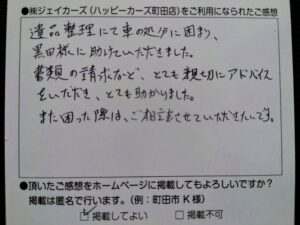 ●㈱ジェイカーズ(ハッピーカーズ町田店)をご利用になられたご感想
遺品整理にて車の処分に困り、
黒田様に助けていただきました。
書類の請求など、とても親切にアドバイス
をいただき、とても助かりました。
また困った際は、ご相談させていただきたいです。
●頂いたご感想をホームページに掲載してもよろしいですか?
掲載は匿名で行います。(例:町田市K様)
☑掲載してよい □掲載不可